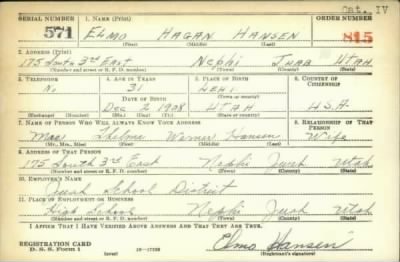 Cat. IV
SERIAL NUMBER 1. NAME (Print) ORDER NUMBER
571 ELMO HAGAN HANSEN 815
(First) (Middle) (Last)
2. ADDRESS (Print)
175 South 3rd East Nephi Juab Utah
(Number and street or R. F. D. number) (Town) (County) (State)
3. TELEPHONE 4. AGE IN YEARS 5. PLACE OF BIRTH 6. COUNTRY OF CITIZENSHIP
No 31 LEHI
DATE OF BIRTH (Town or county)
Dec 2 1908 UTAH U.S.A.
(Exchange) (Number) (Mo.) (Day) (Yr.) (State or country)
7. NAME OF PERSON WHO WILL ALWAYS KNOW YOUR ADDRESS 8. RELATIONSHIP OF THAT PERSON
Mrs Thelma Warner Hansen Wife
(Mr., Mrs., Miss) (First) (Middle) (Last)
9. ADDRESS OF THAT PERSON
175 South 3rd East Nephi Juab Utah
(Number and street or R. F. D. number) (Town) (County) (State)
10. EMPLOYER'S NAME
Juab School District
11. PLACE OF EMPLOYMENT OR BUSINESS
High School Nephi Juab Utah
(Number and street or R. F. D. number) (Town) (County) (State)
I AFFIRM THAT I HAVE VERIFIED ABOVE ANSWERS AND THAT THEY ARE TRUE.
REGISTRATION CARD
D. S. S. Form 1 16—17105 Elmo Hansen
(over) (Registrant's signature)